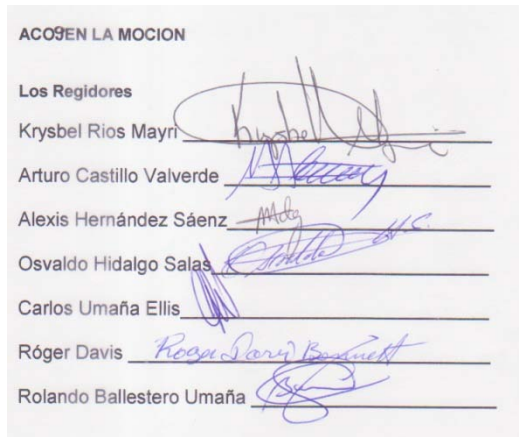 ACOGEN LA MOCION
Los Regidores
Krysbel Rios Mayri
Arturo Castillo Valverde
Alexis Hernández Sáenz
Osvaldo Hidalgo Salas H.C.
Carlos Umaña Ellis
Róger Davis Roger Davis Bennett
Rolando Ballestero Umaña